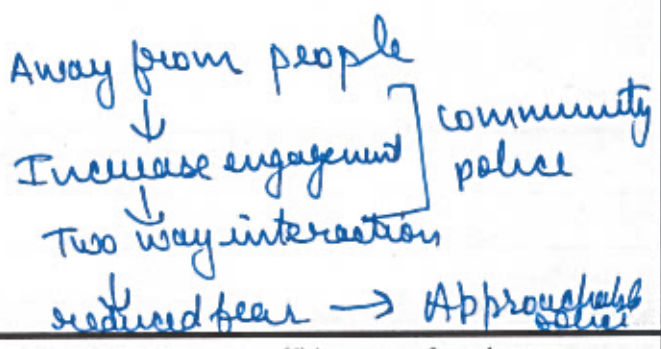 Away from people
↓
Increase engagement
community
police
↓
Two way interaction
↓
reduced fear → Approachable
police